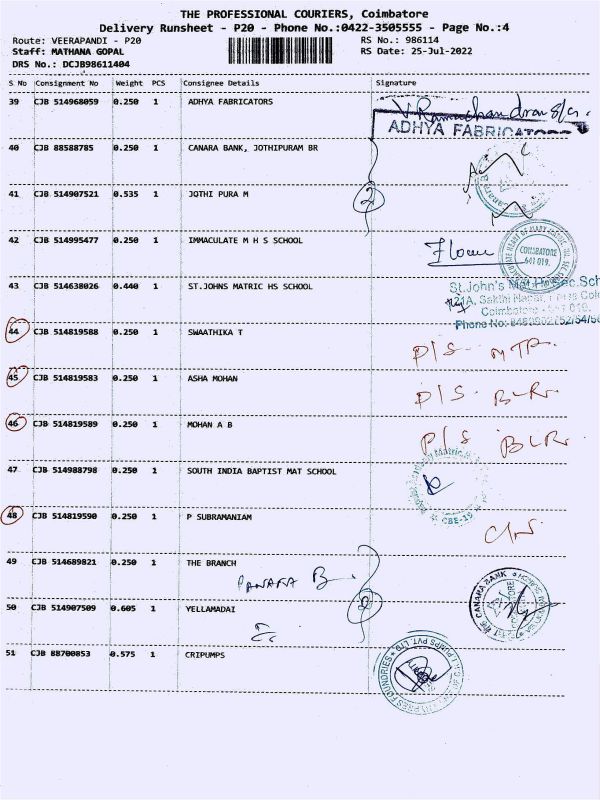 THE PROFESSIONAL COURIERS, Coimbatore
Delivery Runsheet - P20 - Phone No.:0422-3505555 - Page No.:4
Route: VEERAPANDI - P20
RS No.: 986114
Staff: MATHANA GOPAL
RS Date: 25-Jul-2022
DRS No.: DCJB98611404
S No Consignment No Weight PCS Consignee Details Signature
39 CJB 514968059 0.250 1 ADHYA FABRICATORS
V. Ramachandran
ADHYA FABRICATORS
40 CJB 88588785 0.250 1 CANARA BANK, JOTHIPURAM BR
41 CJB 514907521 0.535 1 JOTHI PURA M
2
42 CJB 514995477 0.250 1 IMMACULATE M H S SCHOOL
COIMBATORE
641 019.
43 CJB 514638026 0.440 1 ST.JOHNS MATRIC HS SCHOOL
St.John's Mat.Hr.Sec.Sch
Coimbatore - 641 019.
44 CJB 514819588 0.250 1 SWAATHIKA T
P/S MTP.
45 CJB 514819583 0.250 1 ASHA MOHAN
P/S. BLR.
46 CJB 514819589 0.250 1 MOHAN A B
P/S BLR.
47 CJB 514988798 0.250 1 SOUTH INDIA BAPTIST MAT SCHOOL
CBE-19
48 CJB 514819590 0.250 1 P SUBRAMANIAM
49 CJB 514689821 0.250 1 THE BRANCH
CANARA BANK
50 CJB 514907509 0.605 1 YELLAMADAI
2
51 CJB 88700853 0.575 1 CRIPUMPS